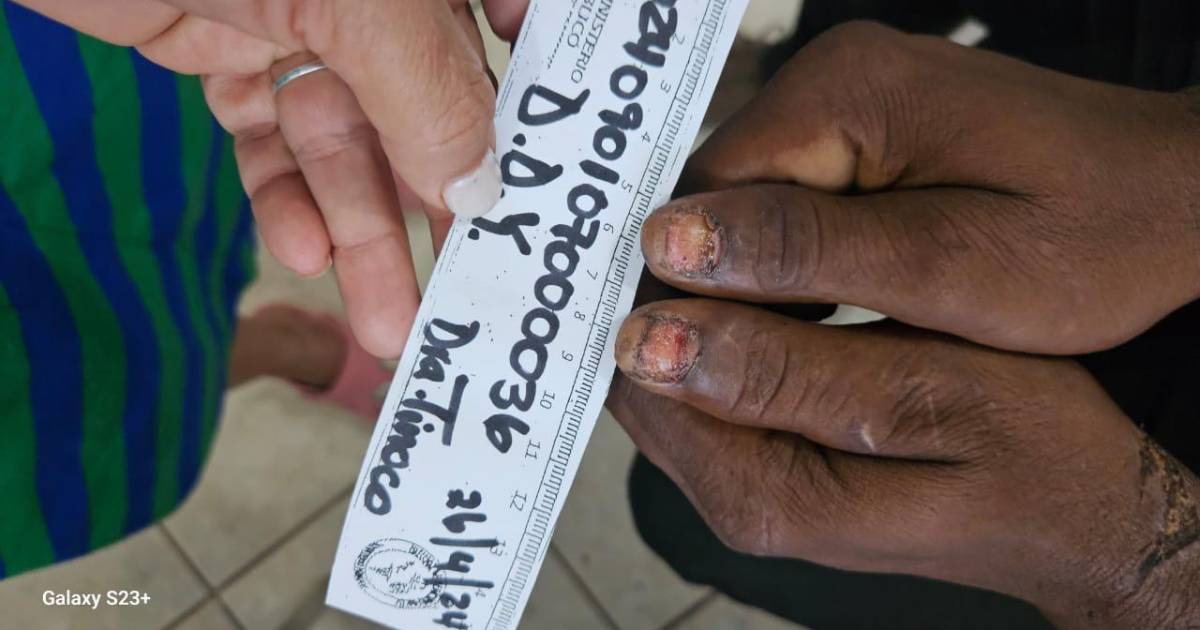 NISTERIO
BUCO
24090107000036
D.D.Y.
Dra. Tinoco
26/4/24
2 3 4 5 6 7 8 9 10 11 12 13
Galaxy S23+